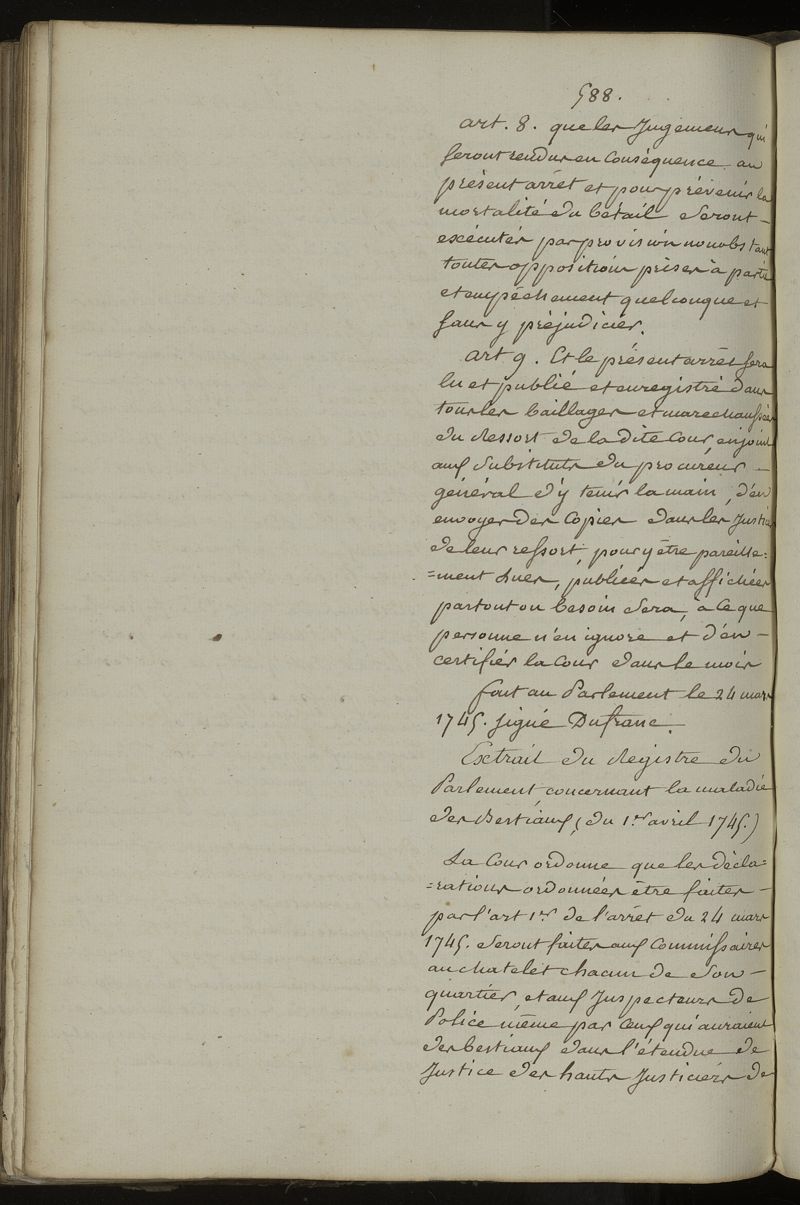 588.
art. 8. que les Jugemens qui
seront rendus en conséquence au
présent arrêt et pour prévenir la
mortalité du bétail seront -
exécutés par provision nonobstant
toutes oppositions prises à partie
et empêchement quelconque et
sans y préjudicier.
art 9. Et le présent arrêt sera
lu et publié et enregistré dans
tous les baillages et marechaussées
du Ressort de la dite Cour enjoint
aux substituts du procureur -
général d'y tenir la main, d'en
envoyer des Copies dans les Justices
de leur ressort, pour y être pareille=
=ment Lues, publiées et affichées
partout ou besoin sera, à ce que
personne n'en ignore et d'en -
certifier la Cour dans le mois
fait au Parlement le 24 mars
1745. signé Dufranc.
Extrait du Registre du
Parlement, concernant la maladie
des Bestiaux, (du 1.er avril 1745.)
La Cour ordonne que les décla=
=rations ordonnées être faites -
par l'art 1.er de l'arrêt du 24 mars
1745. seront faites aux Commissaires
au chatelet chacun de son -
quartier, et aux Inspecteurs de
Police même par ceux qui auraient
des bestiaux dans l'étendue de
Justice des hauts Justiciers de